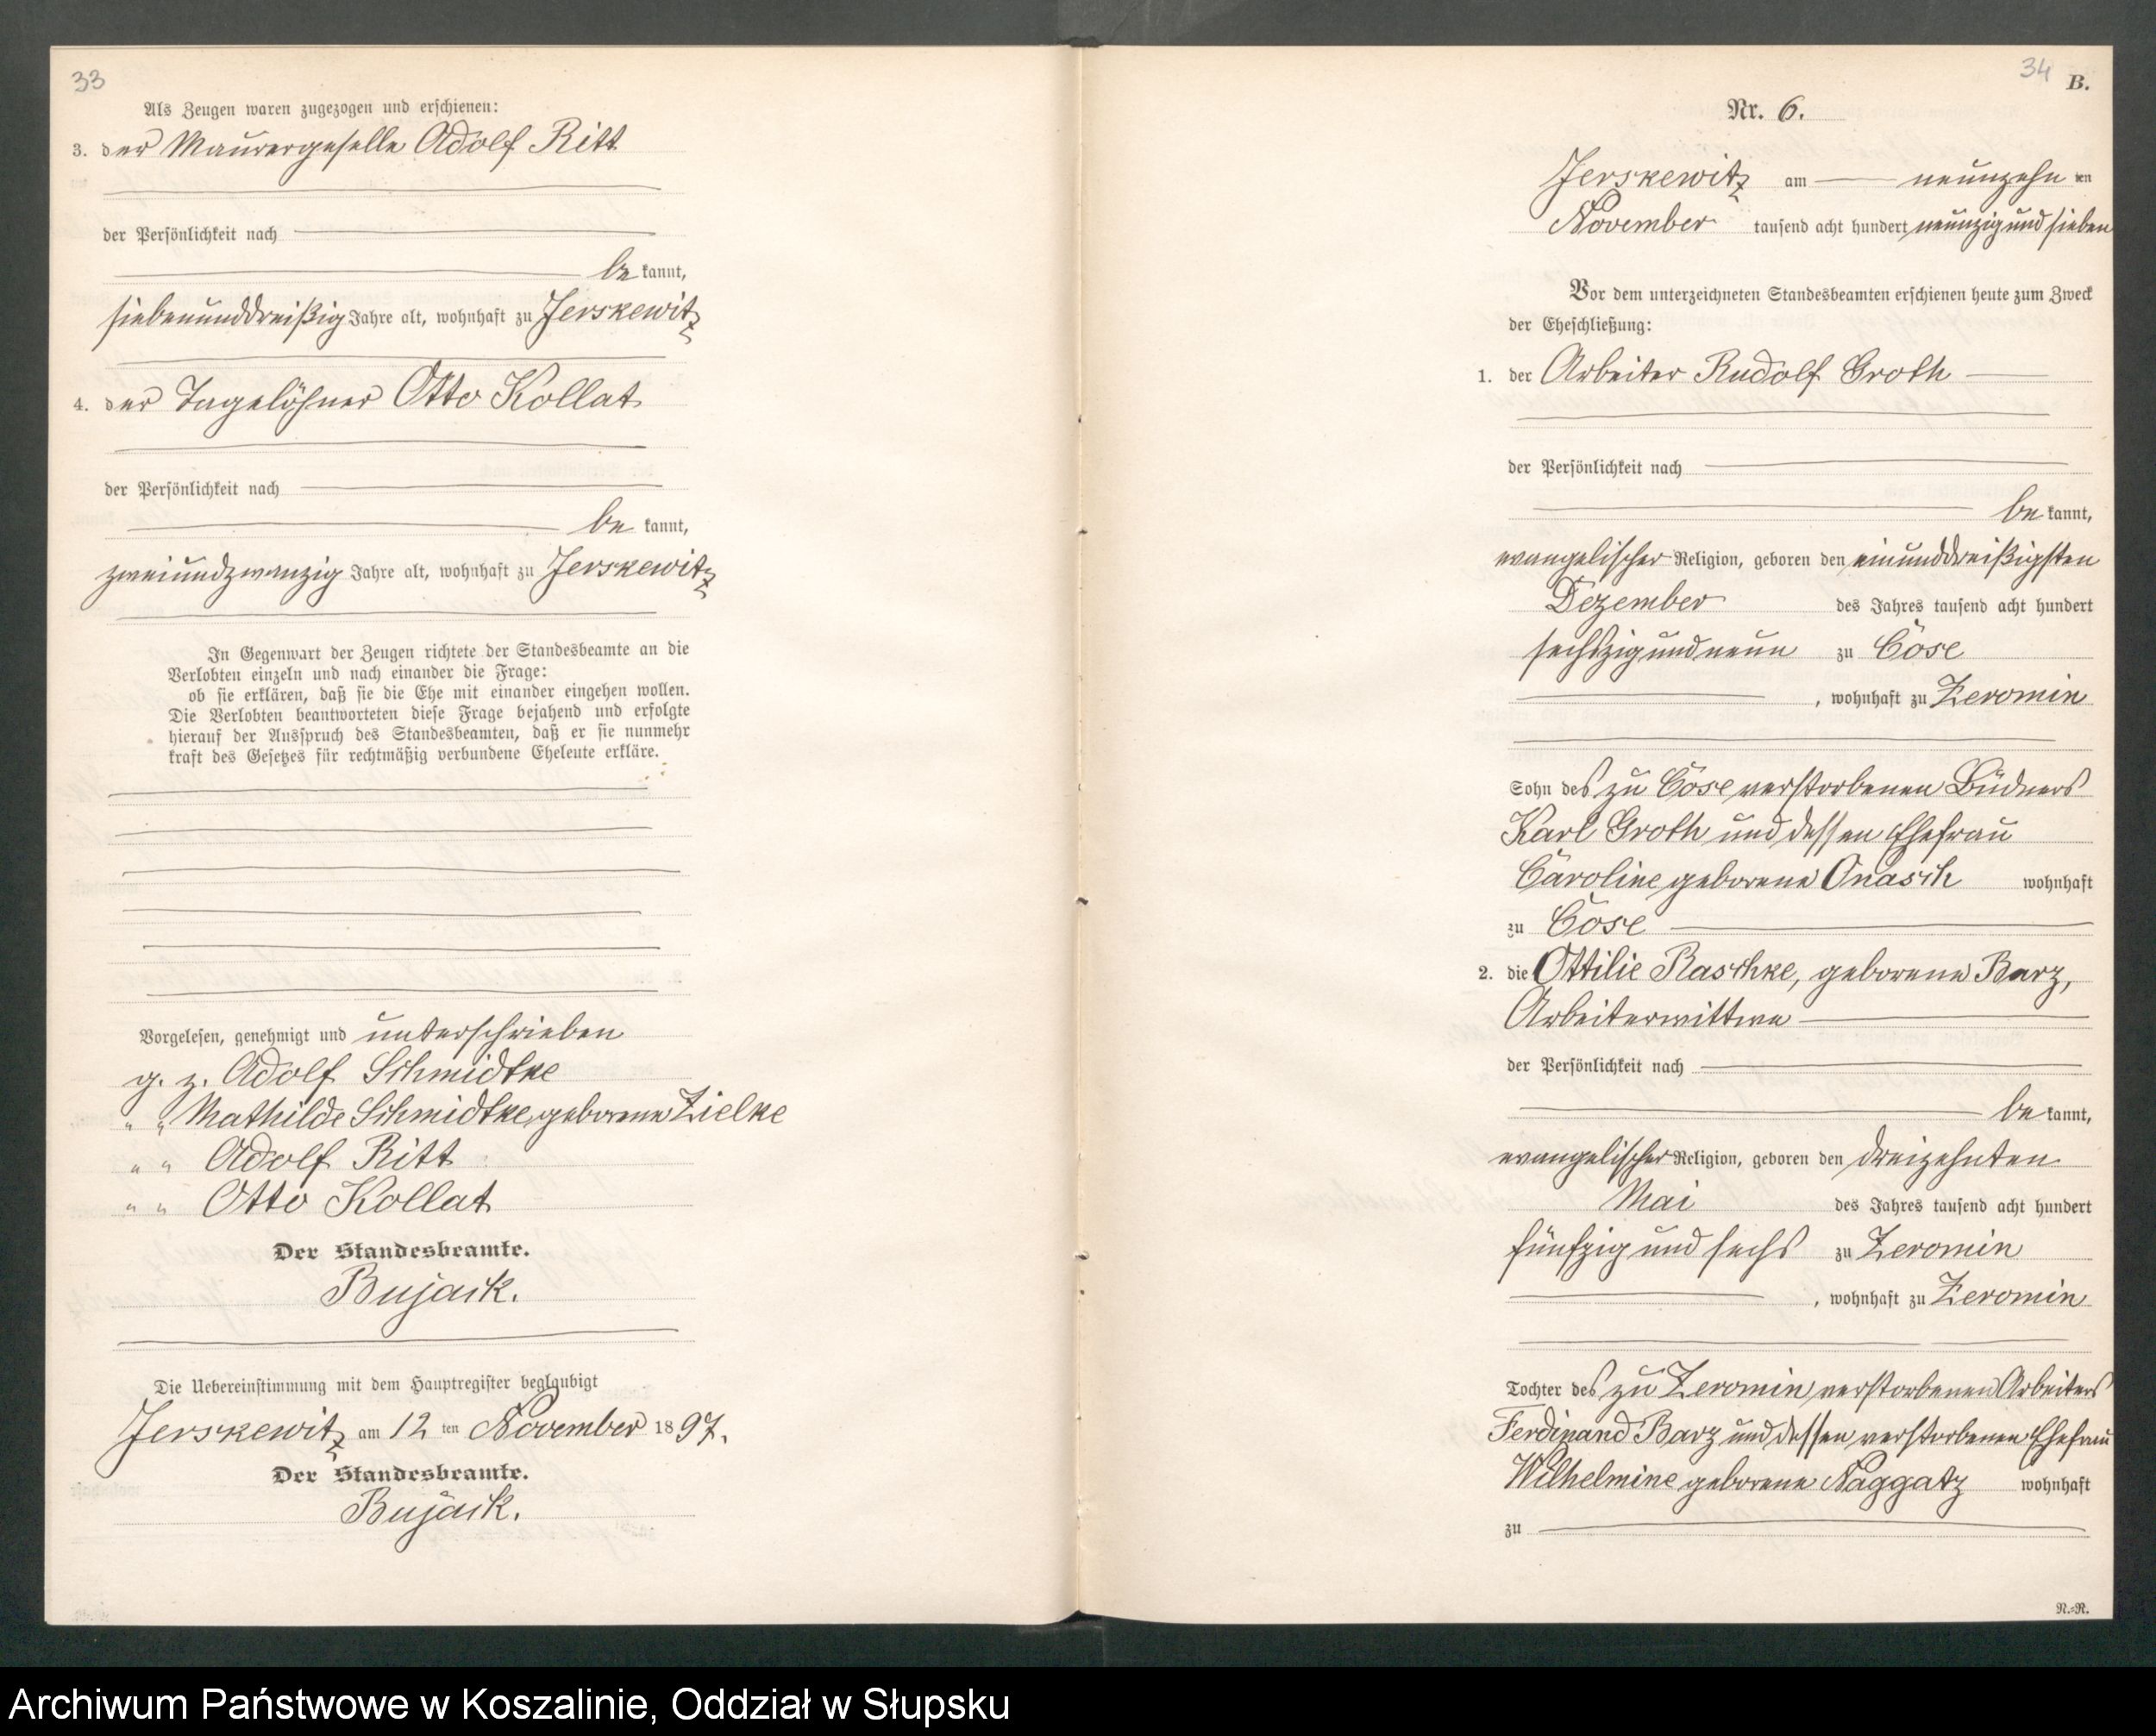 33
Als Zeugen waren zugezogen und erschienen:
3. der Maurergeselle Adolf Ritt
der Persönlichkeit nach
be kannt,
siebenunddreißig Jahre alt, wohnhaft zu Jerskewitz
4. der Tagelöhner Otto Kollat
der Persönlichkeit nach
be kannt,
zweiundzwanzig Jahre alt, wohnhaft zu Jerskewitz
In Gegenwart der Zeugen richtete der Standesbeamte an die
Verlobten einzeln und nach einander die Frage:
ob sie erklären, daß sie die Ehe mit einander eingehen wollen.
Die Verlobten beantworteten diese Frage bejahend und erfolgte
hierauf der Ausspruch des Standesbeamten, daß er sie nunmehr
kraft des Gesetzes für rechtmäßig verbundene Eheleute erkläre.
Vorgelesen, genehmigt und unterschrieben
g. z. Adolf Schmidtke
" " Mathilde Schmidtke, geborene Zielke
" " Adolf Ritt
" " Otto Kollat
Der Standesbeamte.
Bujack.
Die Uebereinstimmung mit dem Hauptregister beglaubigt
Jerskewitz am 12 ten November 18 97.
Der Standesbeamte.
Bujack.
34
B.
Nr. 6.
Jerskewitz am neunzehn ten
November tausend acht hundert neunzig und sieben
Vor dem unterzeichneten Standesbeamten erschienen heute zum Zweck
der Eheschließung:
1. der Arbeiter Rudolf Groth
der Persönlichkeit nach
be kannt,
evangelischer Religion, geboren den einunddreißigsten
Dezember des Jahres tausend acht hundert
sechszig und neun zu Cose
, wohnhaft zu Zeromin
Sohn des zu Cose verstorbenen Büdners
Karl Groth und dessen Ehefrau
Caroline geborene Onasch wohnhaft
zu Cose
2. die Ottilie Raschke, geborene Barz,
Arbeiterwittwe
der Persönlichkeit nach
be kannt,
evangelischer Religion, geboren den dreizehnten
Mai des Jahres tausend acht hundert
fünfzig und sechs zu Zeromin
, wohnhaft zu Zeromin
Tochter des zu Zeromin verstorbenen Arbeiters
Ferdinand Barz und dessen verstorbenen Ehefrau
Wilhelmine geborene Naggatz wohnhaft
zu
N.=R.
Archiwum Państwowe w Koszalinie, Oddział w Słupsku